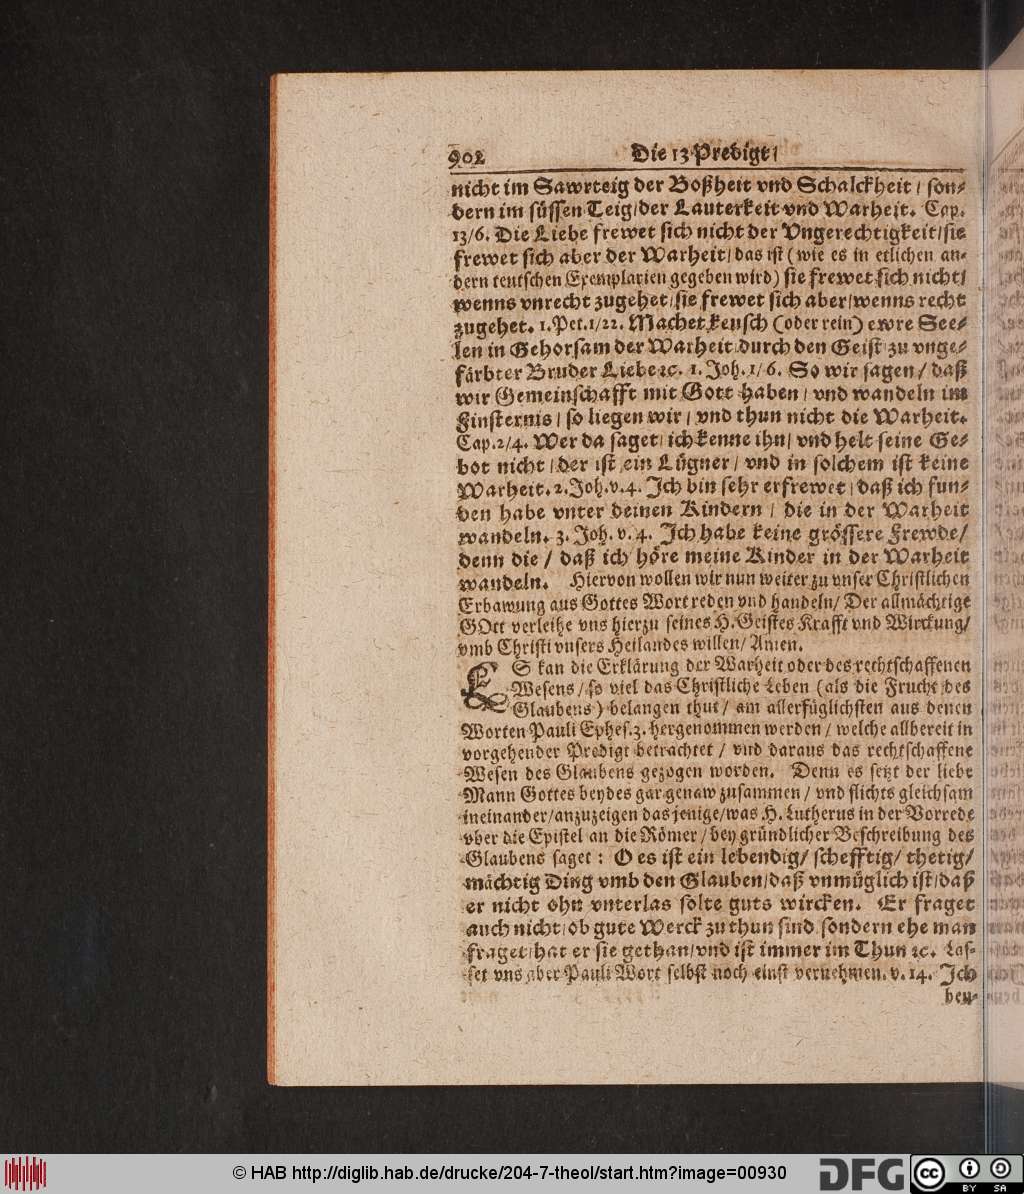 902 Die 13 Predigt/
nicht im Sawrteig der Boßheit vnd Schalckheit/ son-
dern im süssen Teig/der Lauterkeit vnd Warheit. Cap.
13/6. Die Liebe frewet sich nicht der Vngerechtigkeit/sie
frewet sich aber der Warheit/ das ist (wie es in etlichen an-
dern teutschen Exemplarien gegeben wird) sie frewet sich nicht/
wenns vnrecht zugehet/sie frewet sich aber/wenns recht
zugehet. 1. Pet.1/22. Machet keusch (oder rein) ewre See-
len in Gehorsam der Warheit durch den Geist zu vnge-
färbter Bruder Liebe ꝛc. 1. Joh. 1/6. So wir sagen/ daß
wir Gemeinschafft mit Gott haben/ vnd wandeln im
Finsternis/ so liegen wir/ vnd thun nicht die Warheit.
Cap.2/4. Wer da saget/ ich kenne ihn/ vnd helt seine Ge-
bot nicht/ der ist ein Lügner/ vnd in solchem ist keine
Warheit. 2. Joh.v.4. Ich bin sehr erfrewet/ daß ich fun-
den habe vnter deinen Kindern/ die in der Warheit
wandeln. 3. Joh. v. 4. Ich habe keine grössere Frewde/
denn die/ daß ich höre meine Kinder in der Warheit
wandeln. Hiervon wollen wir nun weiter zu vnser Christlichen
Erbawung aus Gottes Wort reden vnd handeln/ Der allmächtige
GOtt verleihe vns hierzu seines H. Geistes Krafft vnd Wirckung/
vmb Christi vnsers Heilandes willen/ Amen.
ES kan die Erklärung der Warheit oder des rechtschaffenen
Wesens/ so viel das Christliche Leben (als die Frucht des
Glaubens) belangen thut/ am allerfüglichsten aus denen
Worten Pauli Ephes.3. hergenommen werden/ welche allbereit in
vorgehender Predigt betrachtet/ vnd daraus das rechtschaffene
Wesen des Glaubens gezogen worden. Denn es setzt der liebe
Mann Gottes beydes gar genaw zusammen/ vnd flichts gleichsam
ineinander/anzuzeigen das jenige/was H. Lutherus in der Vorrede
vber die Epistel an die Römer/ bey gründlicher Beschreibung des
Glaubens saget: O es ist ein lebendig/ schefftig/ thetig/
mächtig Ding vmb den Glauben/daß vnmüglich ist/daß
er nicht ohn vnterlas solte guts wircken. Er fraget
auch nicht/ob gute Werck zu thun sind sondern ehe man
fraget/hat er sie gethan/vnd ist immer im Thun ꝛc. Las-
set vns aber Pauli Wort selbst noch einst vernehmen. v. 14. Ich
beu-
© HAB http://diglib.hab.de/drucke/204-7-theol/start.htm?image=00930
DFG
cc BY SA